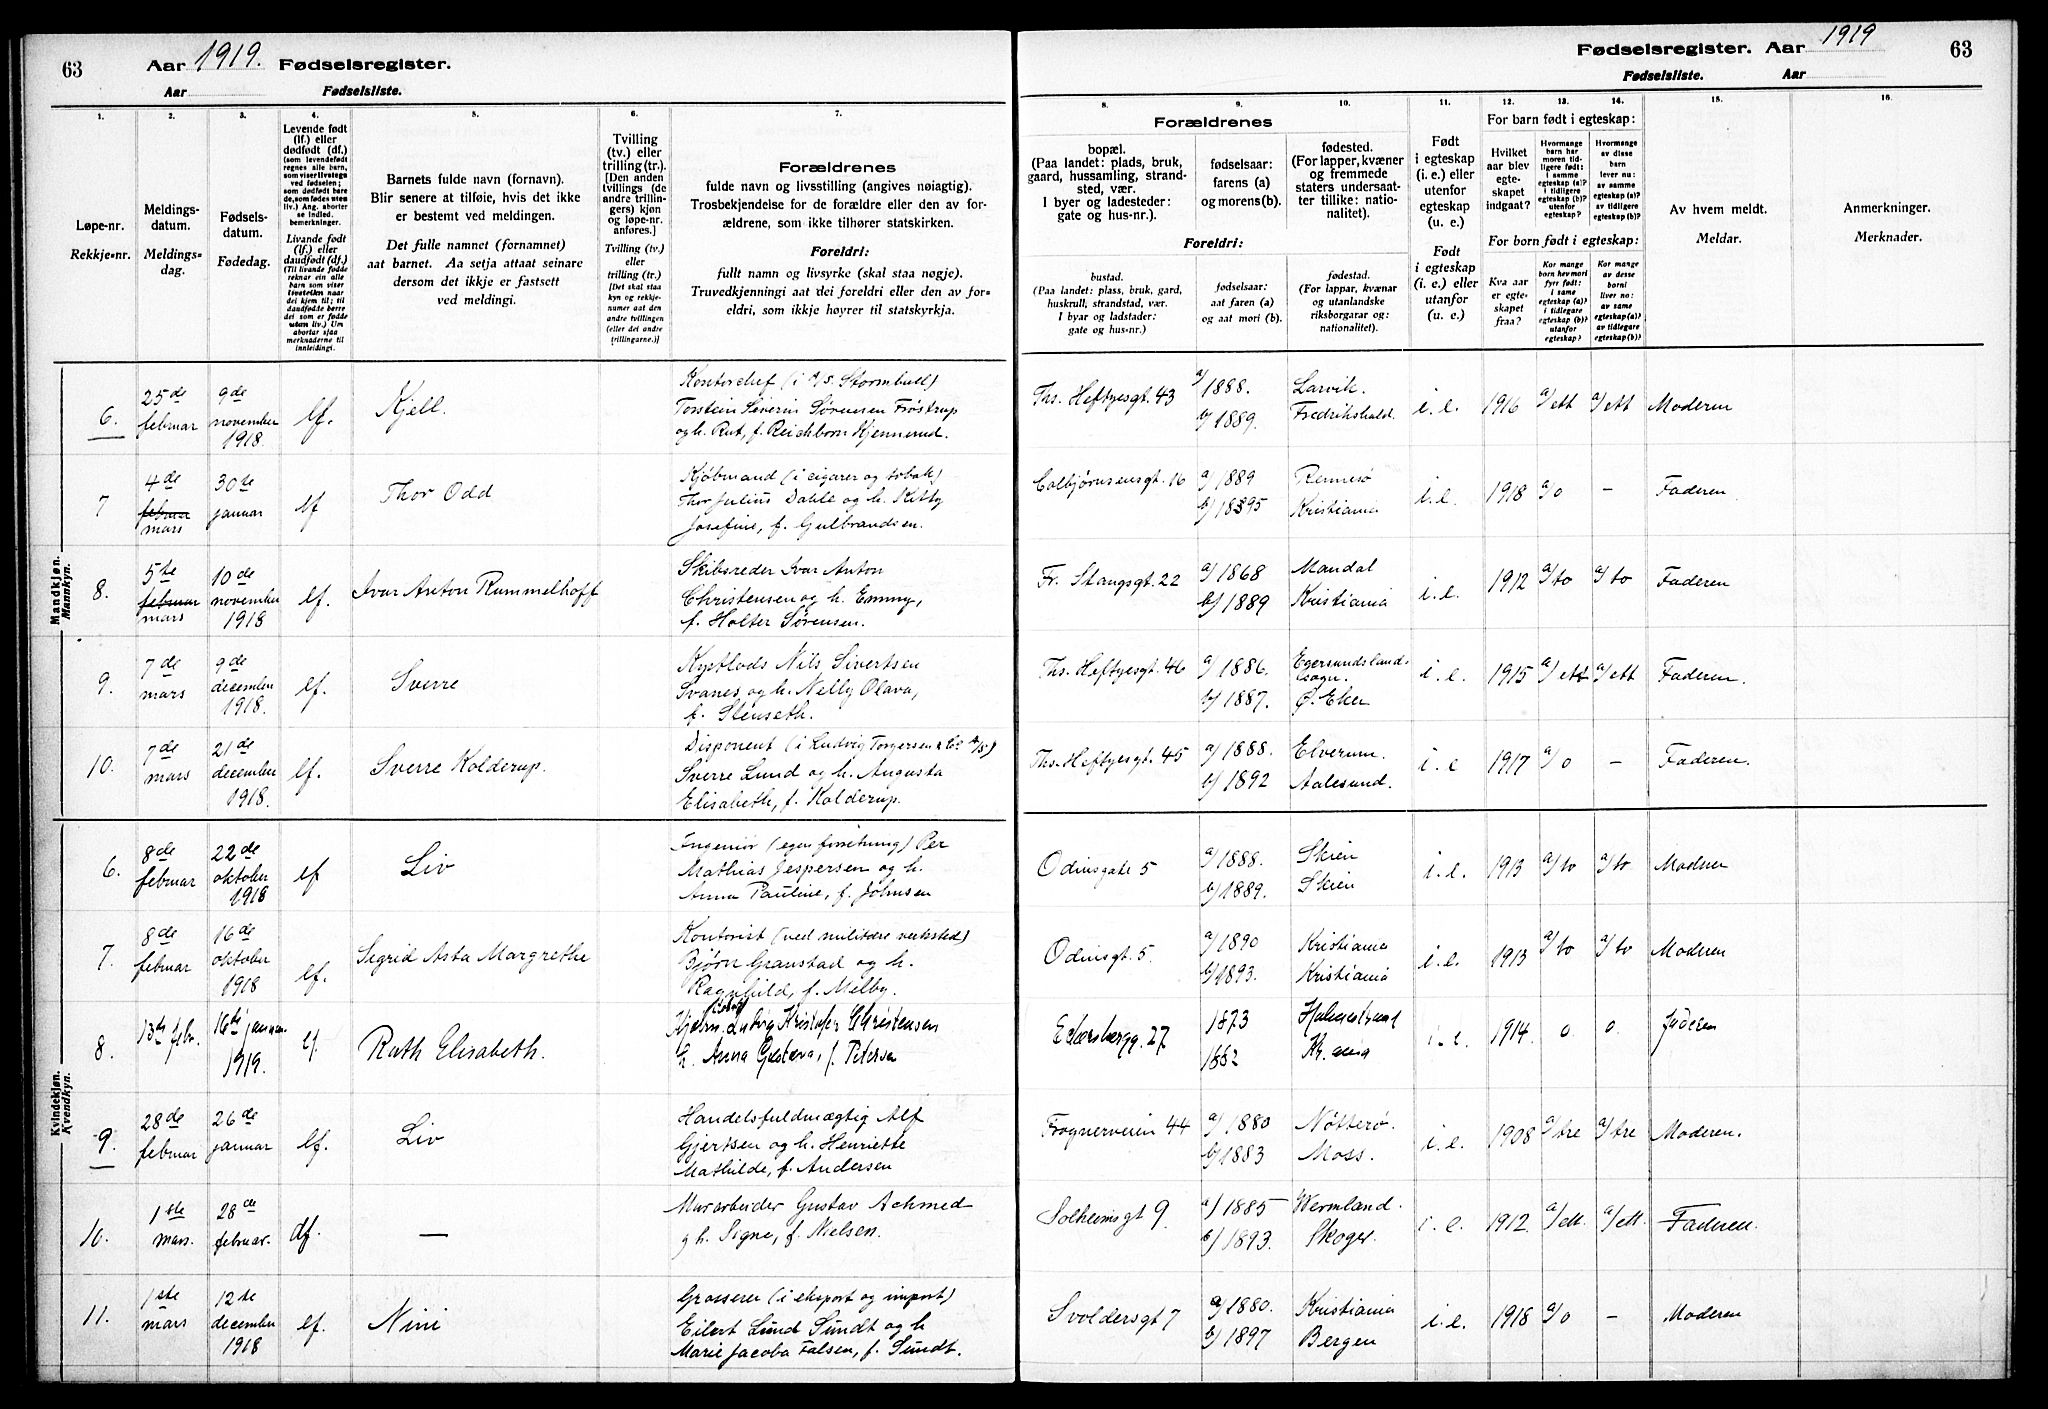 63
Aar 1919. Fødselsregister.
Aar Fødselsliste.
1.
2.
3.
4.
5.
6.
7.
Løpe-nr.
Rekkje-nr.
Meldings-
datum.
Meldings-
dag.
Fødsels-
datum.
Fødedag.
Levende født
(lf.) eller
dødfødt (df.)
Livande født
(lf.) eller
daudfødt (df.)
Barnets fulde navn (fornavn).
Blir senere at tilføie, hvis det ikke
er bestemt ved meldingen.
Det fulle namnet (fornamnet)
aat barnet. Aa setja attaat seinare
dersom det ikkje er fastsett
ved meldingi.
Tvilling
(tv.) eller
trilling (tr.).
[Den anden
tvillings (de
andre trillin-
gers) kjøn
og løpe-nr.
anføres.]
Tvilling (tv.)
eller
trilling (tr.)
[Det skal staa
kyn og rekkje-
numer aat den
andre tvillingen
(eller dei andre
trillingarne.)]
Forældrenes
fulde navn og livsstilling (angives nøiagtig).
Trosbekjendelse for de forældre eller den av for-
ældrene, som ikke tilhører statskirken.
Foreldri:
fullt namn og livsyrke (skal staa nøgje).
Truvedkjenningi aat dei foreldri eller den av for-
eldri, som ikkje høyrer til statskyrkja.
Mandkjøn.
Mannkyn.
6. 25de februar 9de november 1918. lf. Kjell. Kontorchef (i A/S. Stormbull)
Torstein Severin Sørensen Frøstrup
og h. Rut, f. Reichborn Kjennerud.
7 4de februar mars 30te januar lf Thor Odd Kjøbmand (i cigarer og tobak)
Thor Julius Dahle og h. Kitty
Josefine, f. Gulbrandsen.
8. 5te februar mars 10de november 1918 lf. Ivar Anton Rummelhoff Skibsreder Ivar Anton
Christensen og h. Emmy,
f. Holter Sørensen.
9. 7de mars 9de december 1918. lf. Sverre Kystlods Nils Sivertsen
Svanes og h. Nelly Olava,
f. Stenseth.
10. 7de mars 21de december 1918. lf. Sverre Kolderup. Disponent (i Ludvig Torgersen & Co A/S)
Sverre Lund og h. Augusta
Elisabeth, f. Kolderup.
Kvindekjøn.
Kvendkyn.
6. 8de februar 22de oktober 1918 lf Liv Ingeniør (egen forretning) Per
Mathias Jespersen og h.
Anna Pauline, f. Johnsen
7. 8de februar 16de oktober 1918 lf. Sigrid Asta Margrethe Kontorist (ved militære verksted)
Bjørn Granstad og h.
Ragnhild, f. Melby.
8. 13de feb. 16de januar 1919. lf. Ruth Elisabeth. Ludvig Kristofer Christensen
h. Anna Gustava, f. Petersen
9. 28de februar 26de januar lf. Liv Handelsfuldmægtig Alf
Gjertsen og h. Henriette
Mathilde, f. Andersen
10. 1ste mars. 28de februar. df. — Murarbeider Gustav Achmed
og h. Signe, f. Nielsen.
11. 1ste mars 12te december 1918 lf. Nini Grosserer (i eksport og import)
Eilert Lund Sundt og h
Marie Jacoba Falsen, f. Sundt.
Fødselsregister. Aar 1919 63
Fødselsliste. Aar
8.
9.
10.
11.
12.
13.
14.
15.
16.
Forældrenes
bopæl.
(Paa landet: plads, bruk,
gaard, hussamling, strand-
sted, vær.
I byer og ladesteder:
gate og hus-nr.).
Foreldri:
bustad.
(Paa landet: plass, bruk, gard,
huskrull, strandstad, vær.
I byar og ladstader:
gate og hus-nr.)
fødselsaar:
farens (a)
og morens (b).
fødselsaar:
aat faren (a)
og aat mori (b).
fødested.
(For lapper, kvæner
og fremmede
staters undersaat-
ter tillike: natio-
nalitet).
fødestad.
(For lappar, kvænar
og utanlandske
riksborgarar og:
nationalitet).
Født
i egteskap
(i. e.) eller
utenfor
egteskap
(u. e.)
Født
i egteskap
(i. e.) eller
utanfor
(u. e.)
For barn født i egteskap:
Hvilket
aar blev
egte-
skapet
indgaat?
For born født i egteskap:
Kva aar
er egte-
skapet
fraa?
Av hvem meldt.
Meldar.
Anmerkninger.
Merknader.
Ths. Heftyesgt. 43 a/1888. b/1889. Larvik. Fredrikshald. i.e. 1916 a/ett a/ett Moderen
Colbjørnsensgt. 16 a/1889 b/1895 Rennesø Kristiania i.e. 1918 a/o — Faderen.
Fr. Stangsgt. 22 a/1868 b/1889 Mandal Kristiania i.e. 1912 a/to a/to Faderen
Ths. Heftyesgt. 46 a/1886. b/1887. Egersunds lands. sogn. Ø. Eker i.e. 1915 a/ett a/ett Faderen.
Ths. Heftyesgt. 45 a/1888. b/1892 Elverum. Aalesund. i.e 1917 a/o — Faderen.
Odinsgate 5 a/1888. b/1889. Skien Skien i.e. 1913 a/to a/to Moderen
Odinsgt. 5. a/1890 b/1893. Kristiania Kristiania i.e. 1913 a/to a/to Moderen
Eckersbergg. 27 1873 1882 Holmestrand Kr.ania i.e. 1914. o. o. Faderen
Frognerveien 44 a/1880 b/1883 Nøtterø. Moss. i.e. 1908 a/tre a/tre Moderen.
Solheimsgt 9. a/1885 b/1893. Wermland. Skoger. i.e. 1912 a/ett. a/ett. Faderen.
Svoldersgt 7 a/1880. b/1897 Kristiania Bergen i.e. 1918 a/o — Moderen